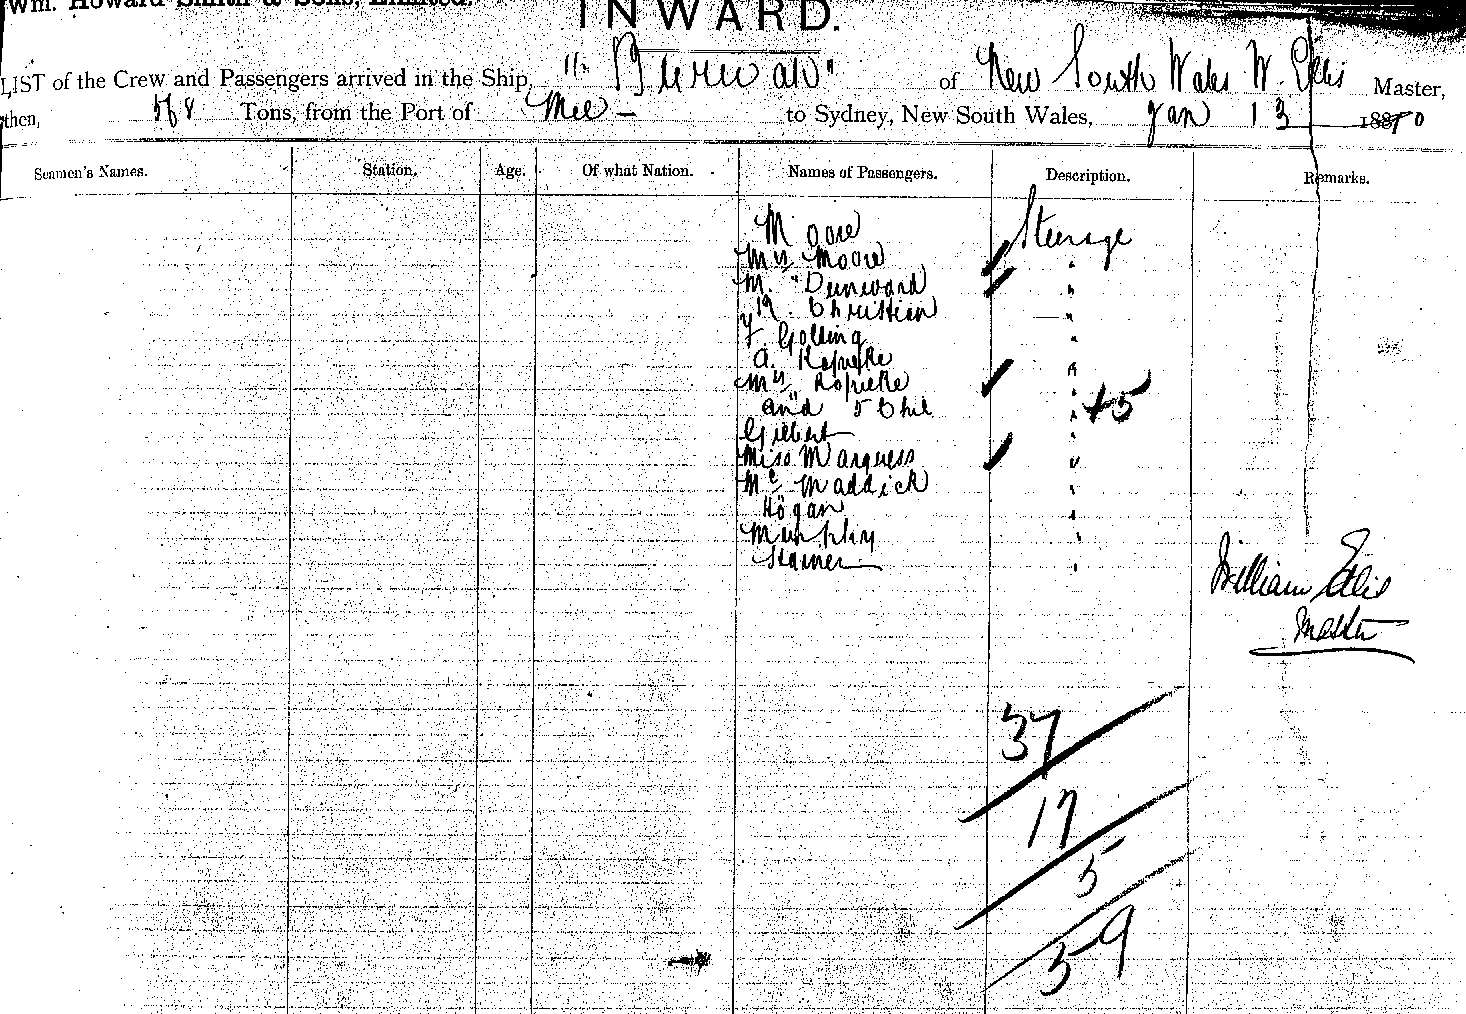 Wm. Howard Smith & Sons, Limited.
INWARD.
LIST of the Crew and Passengers arrived in the Ship, of New South Wales W. Ellis Master,
then, 568 Tons, from the Port of Mel - to Sydney, New South Wales, Jan 13 1890
Seamen's Names. Station. Age. Of what Nation. Names of Passengers. Description. Remarks.
Moore Steerage
Mrs Moore "
M. "
Christian "
F. Golling "
A. "
Mrs "
and 5 Chil " +5
Gilbert "
Miss Marquess "
Mc Maddick "
Hogan "
Murphy "
Stainer "
William Ellis
Master
37
17
5
59